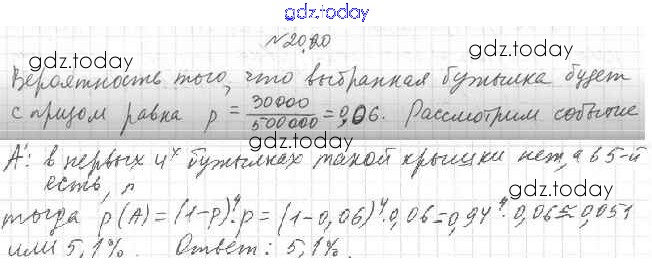 gdz.today
№20.20
gdz.today
gdz.today
Вероятность того, что выбранная бутылка будет
с призом равна p = 30000/500000 = 0,06. Рассмотрим событие
gdz.today
A: в первых 4х бутылках такой крышки нет, а в 5-й
есть,
gdz.today
тогда p(A) = (1-p)⁴·p = (1-0,06)⁴·0,06 = 0,94⁴·0,06 ≈ 0,051
или 5,1%. Ответ: 5,1%.